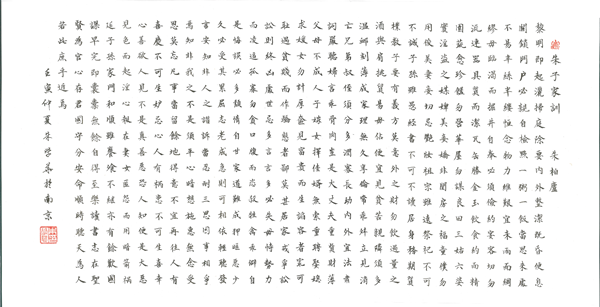 朱子家訓 朱柏廬
黎明即起灑掃庭除要內外整潔既昏便息
關鎖門戶必親自檢點一粥一飯當思來處
不易半絲半縷恒念物力維艱宜未雨而綢
繆毋臨渴而掘井自奉必須儉約宴客切勿
流連器具質而潔瓦缶勝金玉飲食約而精
園蔬愈珍饈勿營華屋勿謀良田三姑六婆
實淫盜之媒婢美妾嬌非閨房之福童僕勿
用俊美妻妾切忌艷妝祖宗雖遠祭祀不可
不誠子孫雖愚經書不可不讀居身務期質
樸教子要有義方莫貪意外之財勿飲過量之
酒與肩挑貿易毋佔便宜見貧苦親鄰須多
溫卹刻薄成家理無久享倫常乖舛立見消
亡兄弟叔侄須分多潤寡長幼內外宜法肅
詞嚴聽婦言乖骨肉豈是丈夫重資財薄
父母不成人子嫁女擇佳婿毋索重聘娶媳
求淑女勿計厚奩見富貴而生諂容者最可
恥遇貧窮而作驕態者賤莫甚居家戒爭訟
訟則終凶處世戒多言言多必失毋恃勢力
而凌逼孤寡勿貪口腹而恣殺牲禽乖僻自
是悔誤必多頹惰自甘家道難成狎昵惡少
久必受其累屈志老成急則可相依輕聽發
言安知非人之譖訴當忍耐三思因事相爭
焉知非我之不是須平心暗想施惠無念受
恩莫忘凡事當留餘地得意不宜再往人有
喜慶不可生妒忌心人有禍患不可生喜幸
心善欲人見不是真善惡恐人知便是大惡
見色而起淫心報在妻女匿怨而用暗箭禍
延子孫家門和順雖饔飧不繼亦有餘歡國
課早完即囊橐無餘自得至樂讀書志在聖
賢為官心存君國守分安命順時聽天為人
若此庶乎近焉
壬寅仲夏 於南京